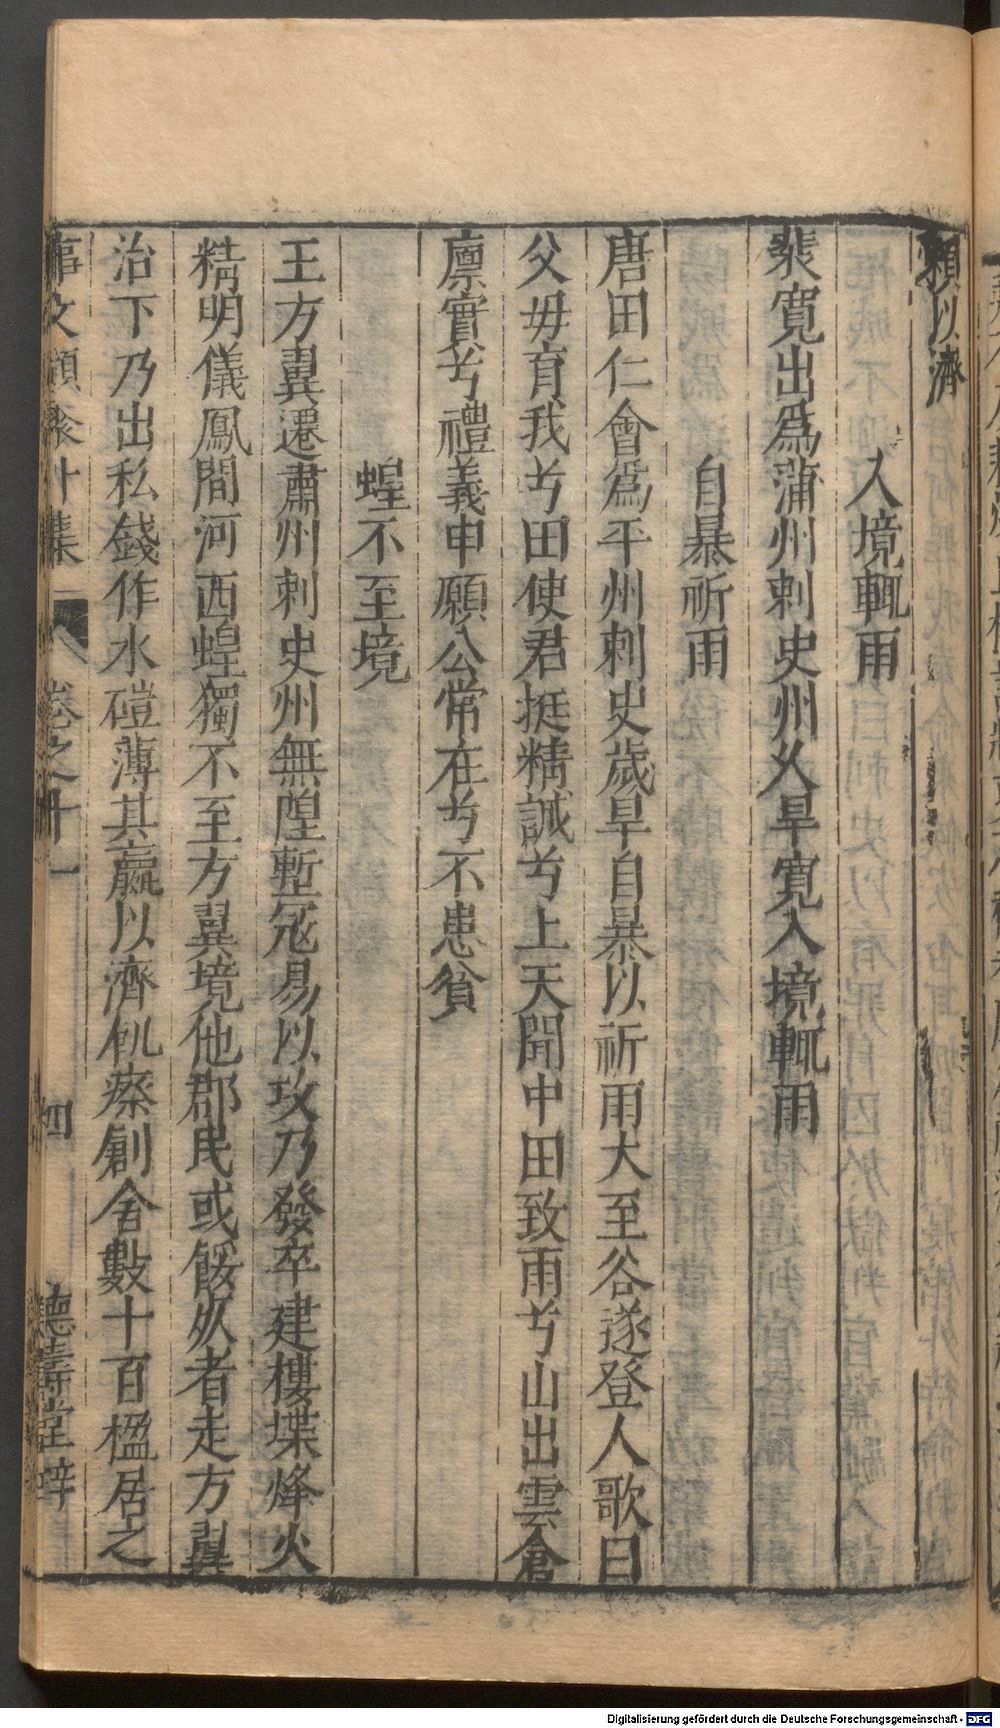 頼以濟
入境輒雨
裴寬出爲蒲州刺史州乆旱寬入境輒雨
自暴祈雨
唐田仁會爲平州刺史歲旱自暴以祈雨大至谷遂登人歌曰
父毋育我兮田使君挺精誠兮上天聞中田致雨兮山出雲倉
廪實兮禮義申願公常在兮不患貧
蝗不至境
王方翼遷肅州刺史州無隍塹冦易以攻乃發卒建樓堞烽火
精明儀鳳間河西蝗獨不至方翼境他郡民或餒死者走方翼
治下乃出私錢作水磑薄其贏以濟飢瘵創舍數十百楹居之
事文類聚外集 卷之十一 四 德壽堂梓
Digitalisierung gefördert durch die Deutsche Forschungsgemeinschaft - DFG